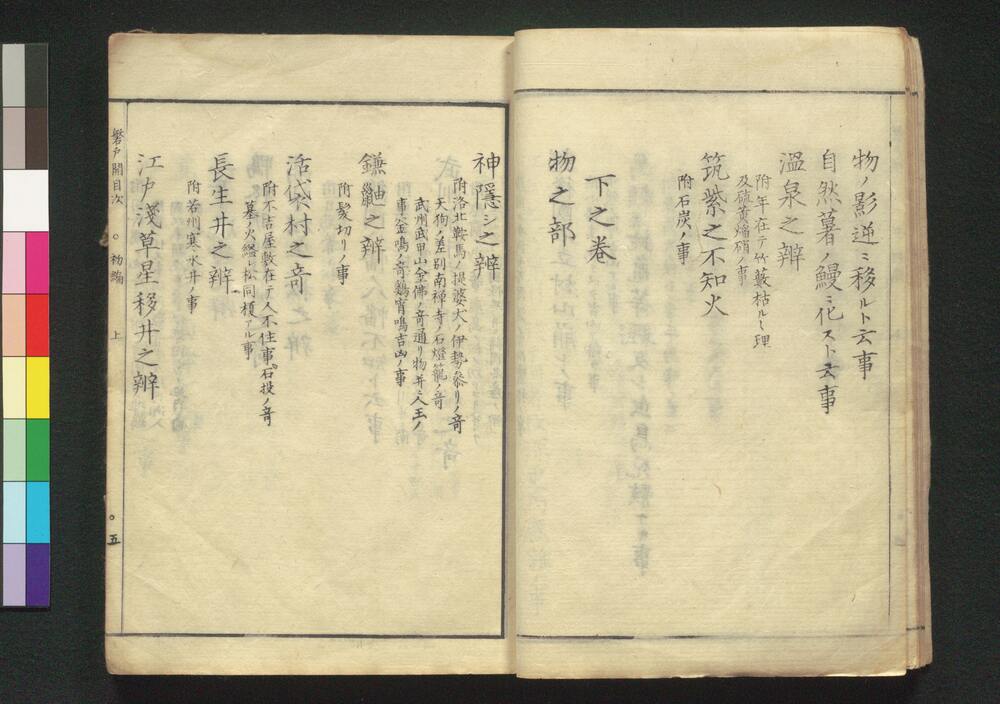 物ノ影逆ニ移ルト云事
自然薯ノ鰻ニ化スト云事
温泉之辨
附年在テ竹藪枯ルヽ理
及硫黄焔硝ノ事
筑紫之不知火
附石炭ノ事
下之巻
物之部
神隠シ之辨
附洛北鞍馬ノ提婆犬ノ伊勢参リノ竒
天狗ノ差別南禅寺ノ石燈籠ノ竒
武州武甲山金佛ノ竒通リ物并ニ人玉ノ
事釜鳴ノ竒鶏宵鳴吉凶ノ事
鎌鼬之辨
附髪切リノ事
活袋村之竒
附不吉屋敷在テ人不住事石投ノ竒
墓ノ火繼シ松同榎アル事
長生井之辨
附若州寒水井ノ事
江戸淺草星移井之辨
磐戸開目次 ○ 初編 上 ○五